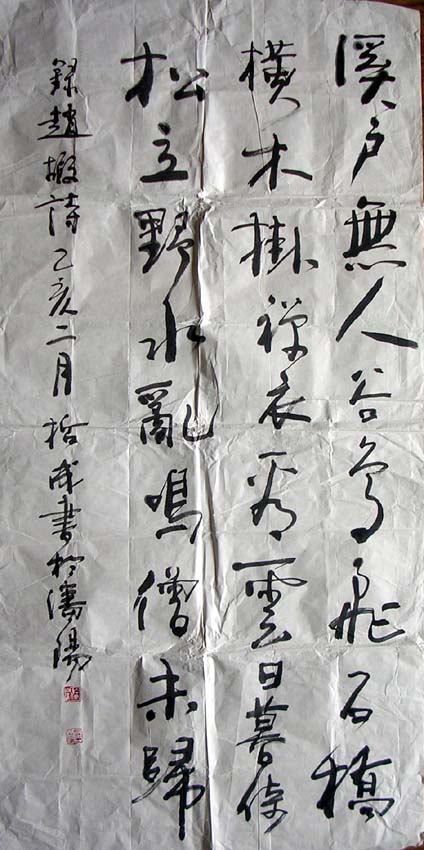 溪戶無人谷鳥飛石橋
橫木掛禪衣看雲日暮倚
松立野水亂鳴僧未歸
錄趙嘏詩乙亥二月哲成書於瀋陽